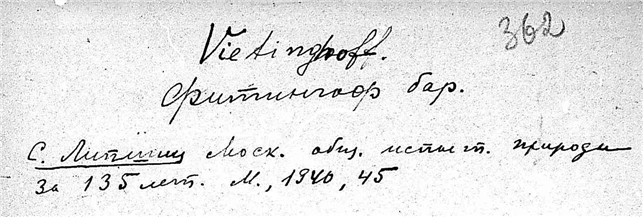 362
Vietinghoff.
Фитингоф бар.
С. Липшиц Моск. общ. испыт. природы
за 135 лет. М., 1940, 45